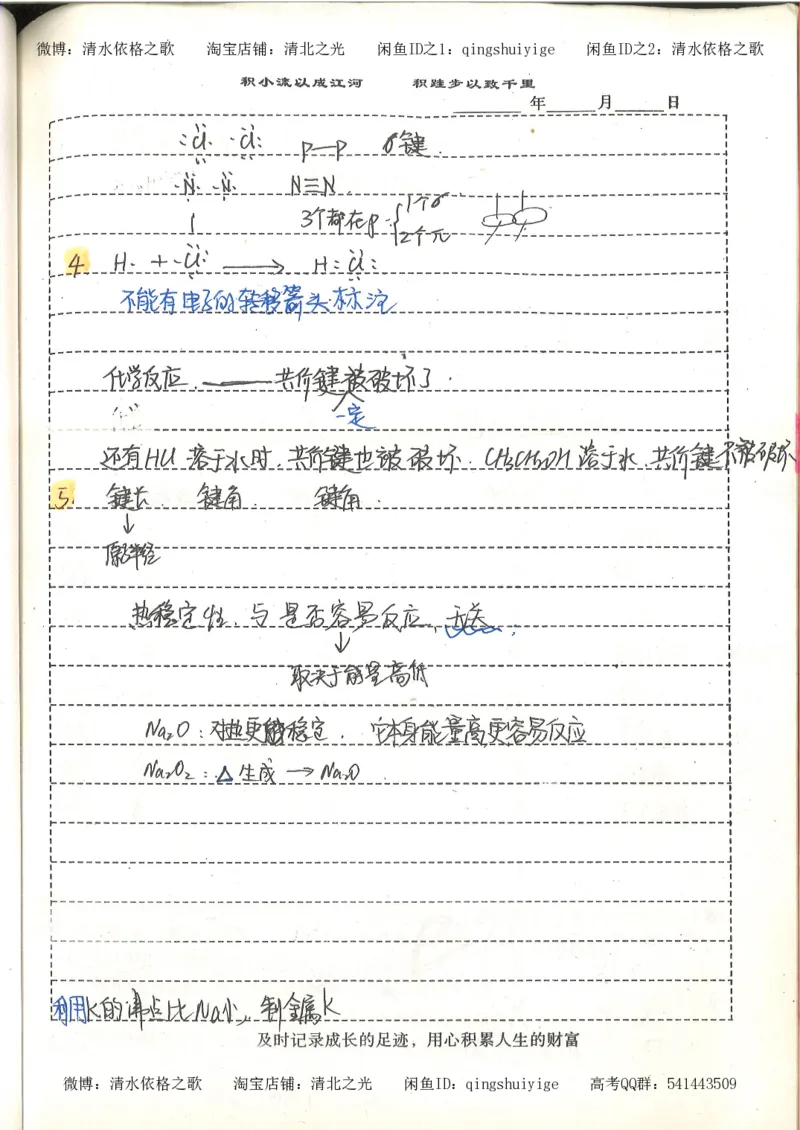 微博：清水依格之歌 淘宝店铺：清北之光 闲鱼ID之1：qingshuiyige 闲鱼ID之2：清水依格之歌
积小流以成江河 积跬步以致千里
年 月 日
:Cl· ·Cl: p—p σ键.
·N· ·N· N≡N.
3个都在p 1个σ
2个π
4 H· + ·Cl: → H:Cl:
不能有电子的转移箭头标注
化学反应. —— 共价键被破坏了.
一定
还有HCl溶于水时.共价键也被破坏. CH3CH2OH溶于水.共价键不被破坏
5. 键长. 键角. 键角.
↓
原子半径
热稳定性.与是否容易反应.无关;
↓
取决于能量高低
Na2O:对热更稳定. 它本身能量高更容易反应
Na2O2:△生成→Na2O
利用K的沸点比Na小,制金属K
及时记录成长的足迹，用心积累人生的财富
微博：清水依格之歌 淘宝店铺：清北之光 闲鱼ID：qingshuiyige 高考QQ群：541443509